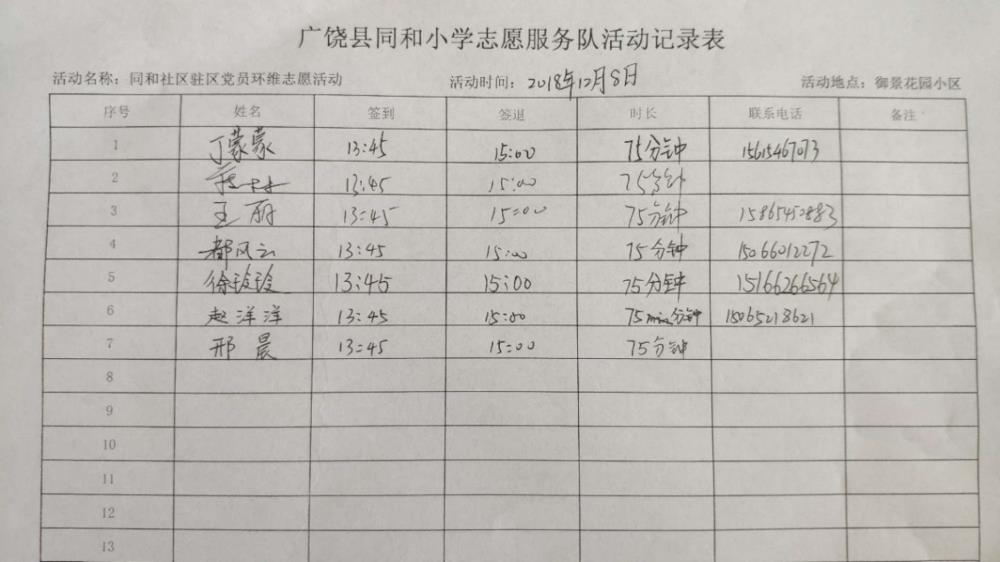 广饶县同和小学志愿服务队活动记录表
活动名称：同和社区驻区党员环维志愿活动 活动时间：2018年12月8日 活动地点：御景花园小区
序号 姓名 签到 签退 时长 联系电话 备注
1 丁蒙蒙 13:45 15:00 75分钟 15615467073
2 13:45 15:00 75分钟
3 王丽 13:45 15:00 75分钟 15865452883
4 都风云 13:45 15:00 75分钟 15066012272
5 徐玲玲 13:45 15:00 75分钟 15166266564
6 赵洋洋 13:45 15:00 75分钟 15065218621
7 邢晨 13:45 15:00 75分钟
8
9
10
11
12
13